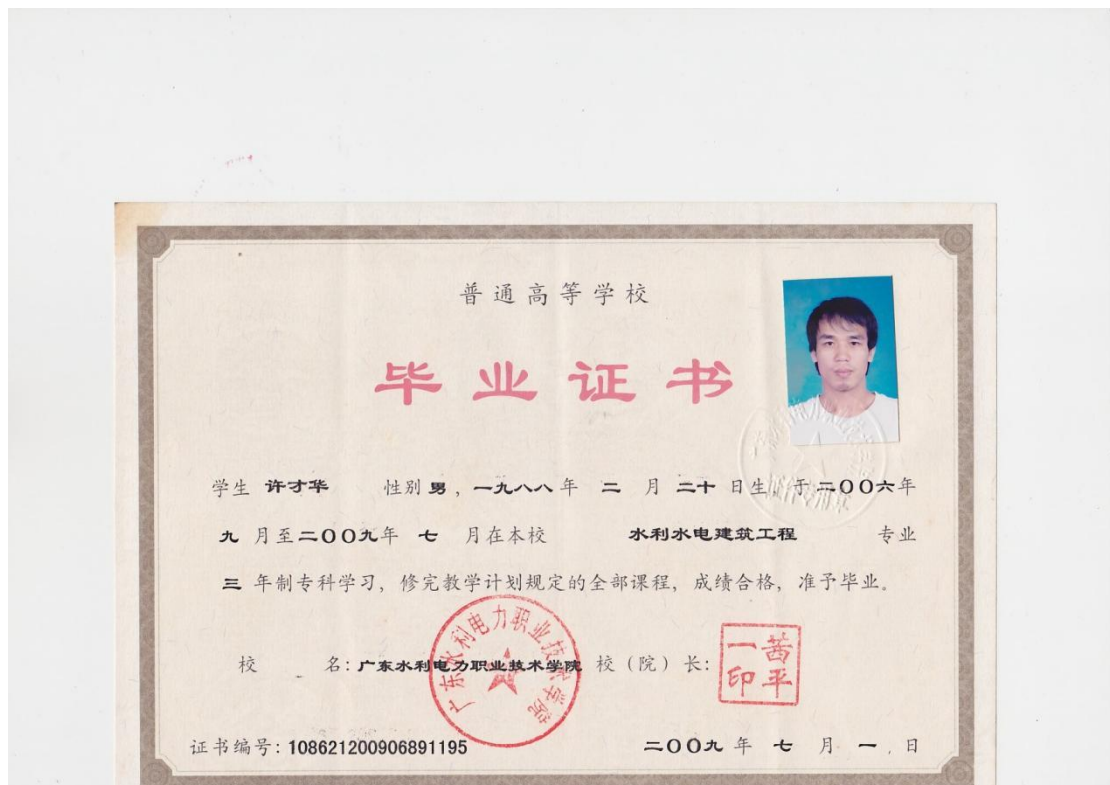 普通高等学校
毕业证书
学生 许才华 性别 男，一九八八年 二 月 二十 日生，于二〇〇六年
九 月至二〇〇九年 七 月在本校 水利水电建筑工程 专业
三 年制专科学习，修完教学计划规定的全部课程，成绩合格，准予毕业。
广东水利电力职业技术学院
校 名：广东水利电力职业技术学院 校（院）长：
茜平
一印
证书编号：108621200906891195 二〇〇九 年 七 月 一 日